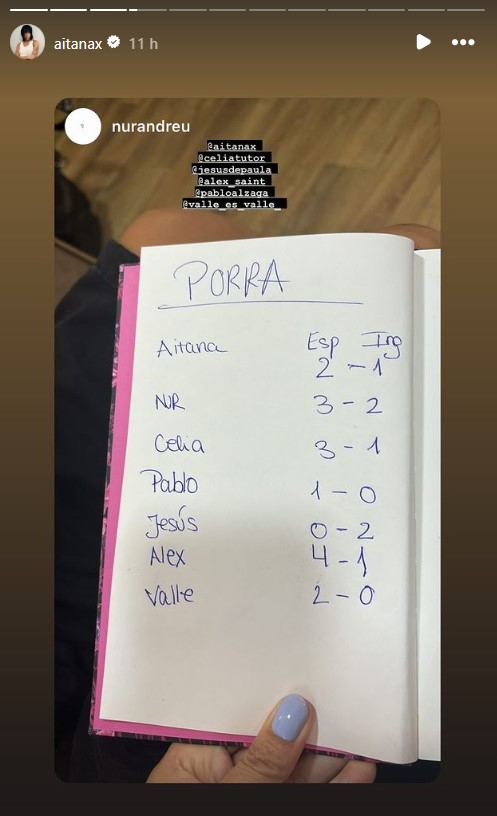 aitanax 11 h
nurandreu
@aitanax
@celiatutor
@jesusdepaula
@alex_saint
@pabloalzaga
@valle_es_valle_
PORRA
Esp Ing
Aitana 2 - 1
NUR 3 - 2
Celia 3 - 1
Pablo 1 - 0
Jesús 0 - 2
Alex 4 - 1
Valle 2 - 0